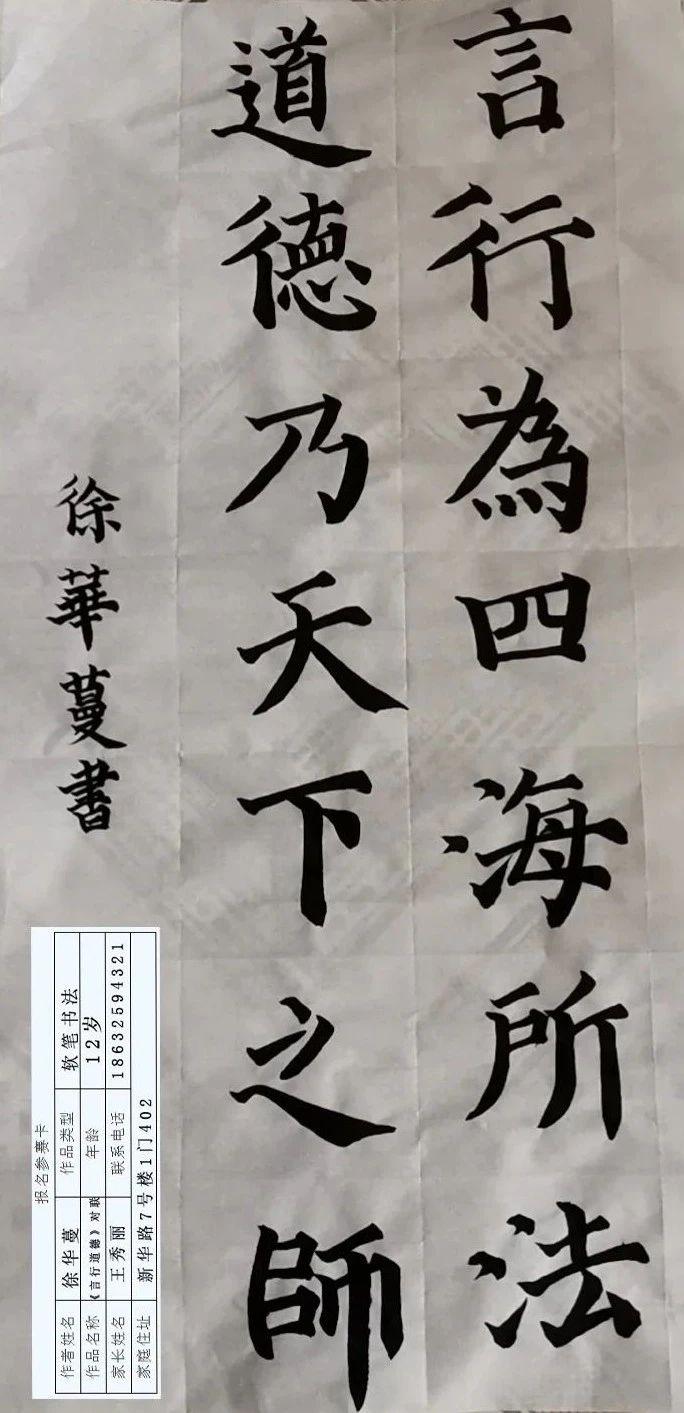 言行為四海所法
道德乃天下之師
徐華蔓書
报名参赛卡
作者姓名 徐华蔓 作品类型 软笔书法
作品名称 《言行道德》对联 年龄 12岁
家长姓名 王秀丽 联系电话 18632594321
家庭住址 新华路7号楼1门402